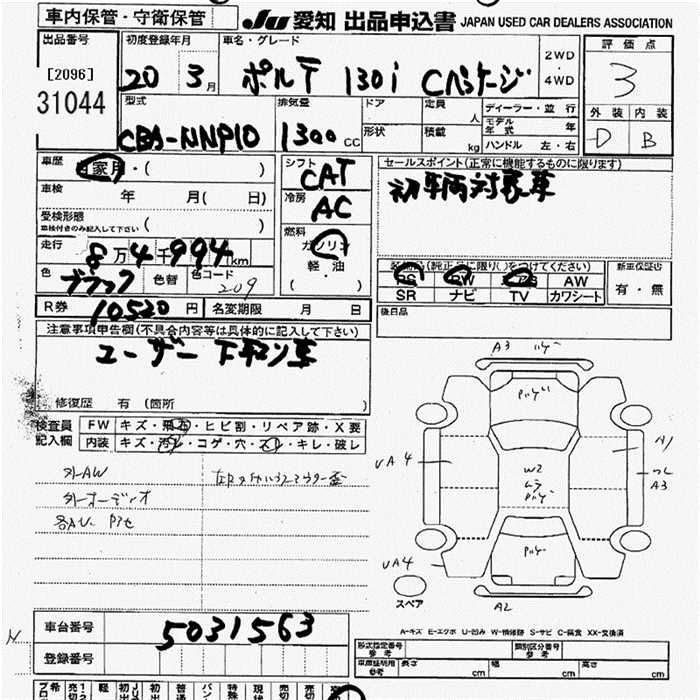 車内保管・守衛保管
JU 愛知 出品申込書 JAPAN USED CAR DEALERS ASSOCIATION
出品番号
[2096]
31044
初度登録年月
20 3月
車名・グレード
ポルテ 130i Cパッケージ
2WD
・
4WD
評価点
3
外装 内装
D B
型式
CBA-NNP10
排気量
1300cc
ドア
形状
定員 人
積載 kg
ディーラー・並行
モデル年式 年
ハンドル 左・右
車歴 自家用・( )
車検 年 月( 日)
受検形態
車検付きのみ記入して下さい ( )
走行 8万4千994km
色 ブラック 色替 色コード 209
シフト CAT
冷房 AC
燃料
ガソリン
軽・油
( ・ )
セールスポイント(正常に機能するものに限ります)
初車両対象車
装備品(純正品に限り○をつけてください)
PS PW AW
SR ナビ TV カワシート
新車保証書
有・無
後日品
R券 10520円 名変期限 月 日
注意事項申告欄(不具合内容等は具体的に記入して下さい)
ユーザー下取り車
修復歴 有(箇所 )
検査員記入欄
FW キズ・飛石・ヒビ割・リペア跡・X要
内装 キズ・汚レ・コゲ・穴・スレ・キレ・破レ
外AW
外オーディオ
A3
UA4
W2
ムラ
A1
A3
UA4
A2
スペア
A-キズ E-エクボ U-凹み W-補修跡 S-サビ C-腐食 XX-交換済
車台番号 5031563
登録番号
N
形式指定番号 参考
類別区分番号 参考
車庫証明用 参考 長さ cm 幅 cm 高さ cm